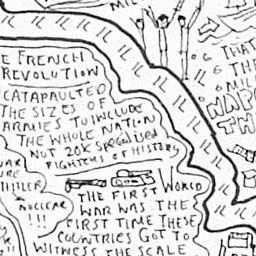 MIL
E FRENCH
REVOLUTION
CATAPAULTED
THE SIZES OF
ARMIES TO INCLUDE
THE WHOLE NATION
NOT 20K SPECIALISED
FIGHTERS OF HISTORY
THAT
THE
MILL
NAPO
TH
WAR
URE
HITLER
NUCLEAR
!!!
THE FIRST WORLD
WAR WAS THE
FIRST TIME THESE
COUNTRIES GOT TO
WITNESS THE SCALE